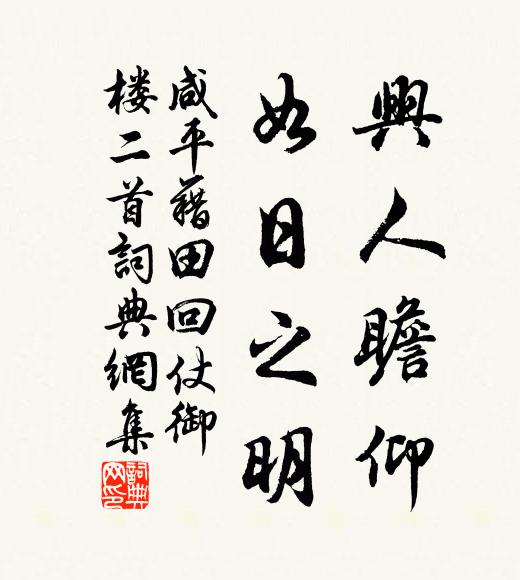 輿人瞻仰
如日之明
咸平藉田回仗御
楼二首詞典網集
詞典网印